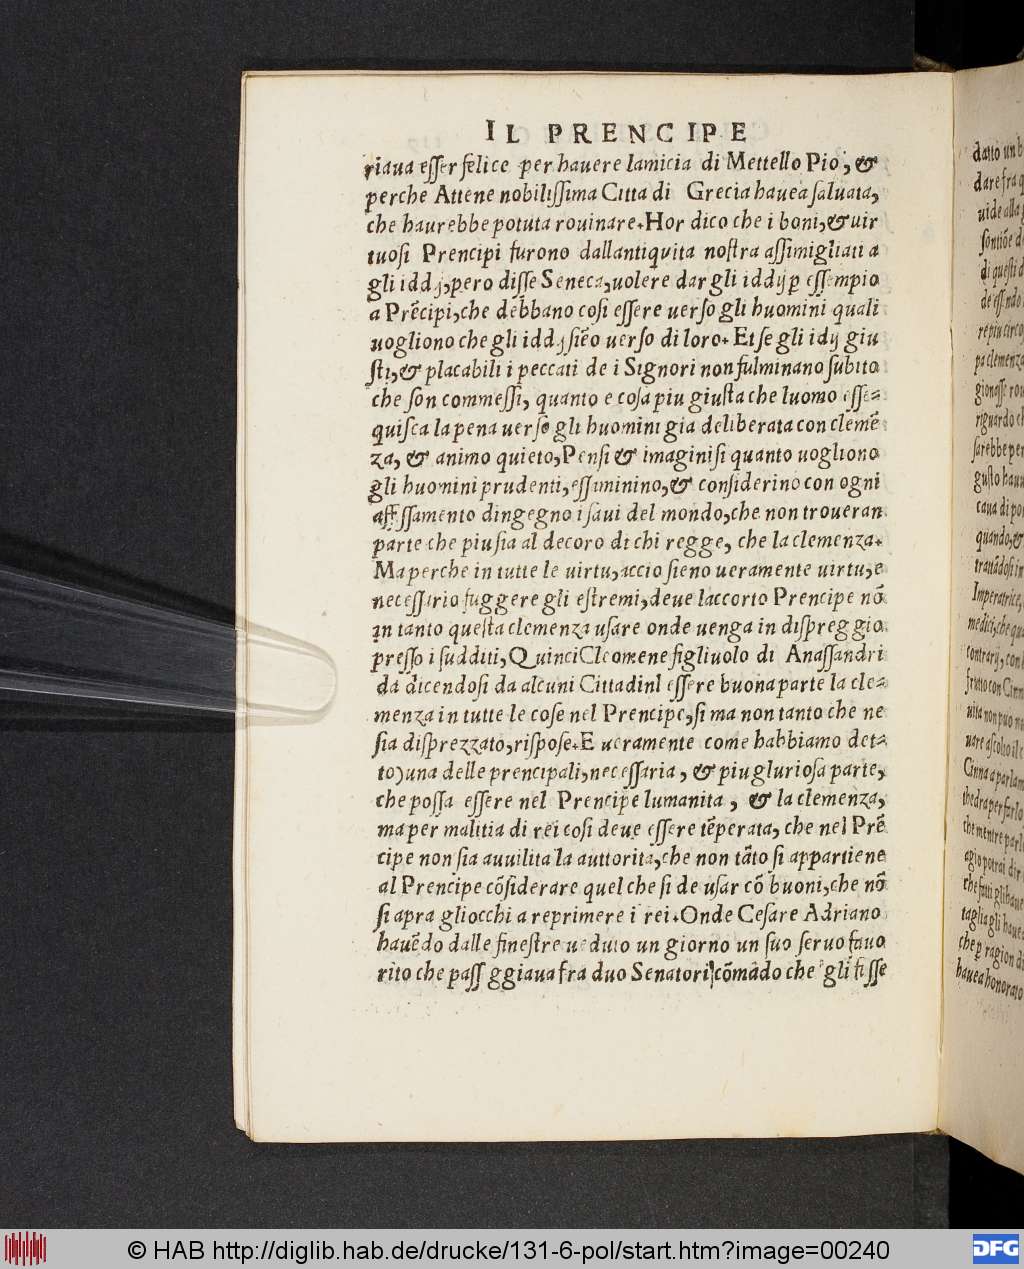 IL PRENCIPE
riaua esser felice per hauere lamicia di Mettello Pio, &
perche Attene nobilissima Citta di Grecia hauea saluata,
che haurebbe potuta rouinare. Hor dico che i boni, & uir
tuosi Prencipi furono dallantiquita nostra assimigliati a
gli iddij, pero disse Seneca, uolere dar gli iddij p essempio
a Prẽcipi, che debbano cosi essere uerso gli huomini quali
uogliono che gli iddij siẽo uerso di loro. Et se gli idij giu
sti, & placabili i peccati de i Signori non fulminano subito
che son commessi, quanto e cosa piu giusta che luomo esse-
quisca la pena uerso gli huomini gia deliberata con clemẽ
za, & animo quieto, Pensi & imaginisi quanto uogliono
gli huomini prudenti, essuminino, & considerino con ogni
affissamento dingegno i saui del mondo, che non troueran
parte che piu sia al decoro di chi regge, che la clemenza.
Ma perche in tutte le uirtu, accio sieno ueramente uirtu, e
necessario fuggere gli estremi, deue laccorto Prencipe nõ
in tanto questa clemenza usare onde uenga in dispreggio
presso i sudditi, Quinci Cleomene figliuolo di Anassandri
da dicendosi da alcuni Cittadini essere buona parte la cle-
menza in tutte le cose nel Prencipe, si ma non tanto che ne
sia disprezzato, rispose. E ueramente come habbiamo det-
to) una delle prencipali, necessaria, & piu gluriosa parte,
che possa essere nel Prencipe lumanita, & la clemenza,
ma per malitia di rei cosi deue essere tẽperata, che nel Prẽ
cipe non sia auuilita la auttorita, che non tãto si appartiene
al Prencipe cõsiderare quel che si de usar cõ buoni, che nõ
si apra gliocchi a reprimere i rei. Onde Cesare Adriano
hauẽdo dalle finestre ueduto un giorno un suo seruo fauo
rito che passeggiaua fra duo Senatori, cõmãdo che gli fisse
datto un b
dare fra q
uide alla
sontiõe d
di questi d
de essendo
repiu circo
pa clemenza
gionasse rou
riguardo ch
sarebbe per
gusto hauu
caua di po
quando, &
trattãdosi in
Imperatrice,
medici, che qu
contrarij, con
frutto con Cinn
uita non puo n
uare ascolto il
Cinna a parlam
thedra per farlo
che mentre parl
agio potrai dir
che fatti gli haue
tagliagli haue
che p ragion di
hauea honorato
© HAB http://diglib.hab.de/drucke/131-6-pol/start.htm?image=00240
DFG